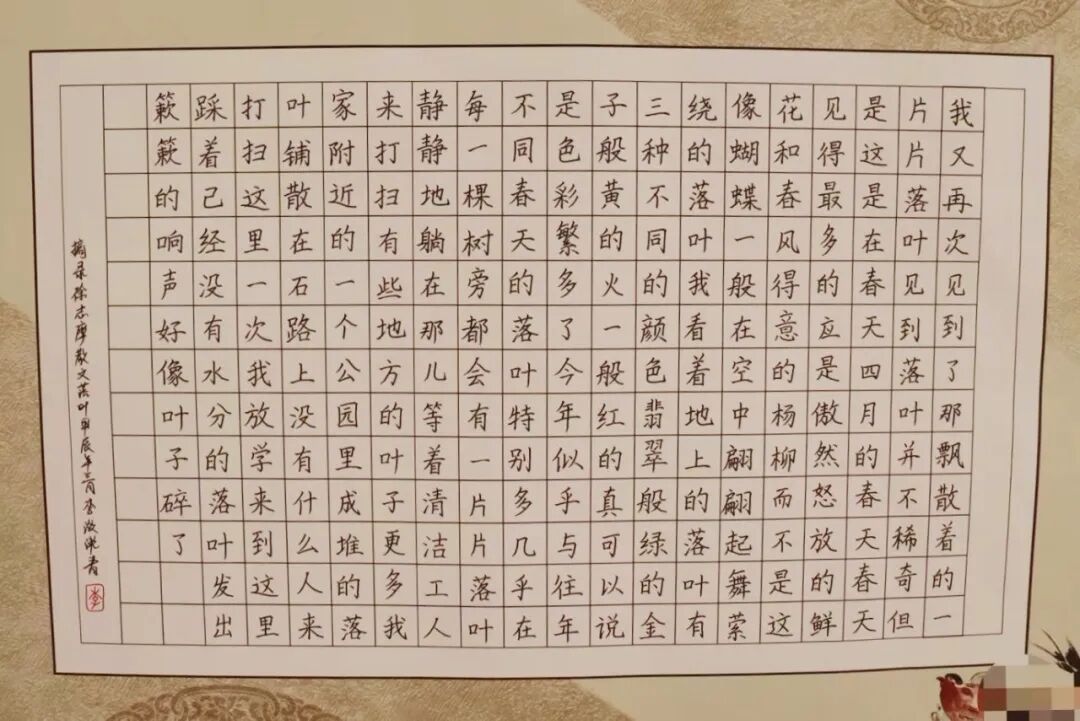 我又再次见到了那飘散着的一
片片落叶见到落叶并不稀奇但
是这是在春天四月的春天春天
见得最多的应是傲然怒放的鲜
花和春风得意的杨柳而不是这
像蝴蝶一般在空中翩翩起舞萦
绕的落叶我看着地上的落叶有
三种不同的颜色翡翠般绿的金
子般黄的火一般红的真可以说
是色彩繁多了今年似乎与往年
不同春天的落叶特别多几乎在
每一棵树旁都会有一片片落叶
静静地躺在那儿等着清洁工人
来打扫有些地方的叶子更多我
家附近的一个公园里成堆的落
叶铺散在石路上没有什么人来
打扫这里一次我放学来到这里
踩着己经没有水分的落叶发出
簌簌的响声好像叶子碎了
摘录徐志摩散文落叶甲辰年
李